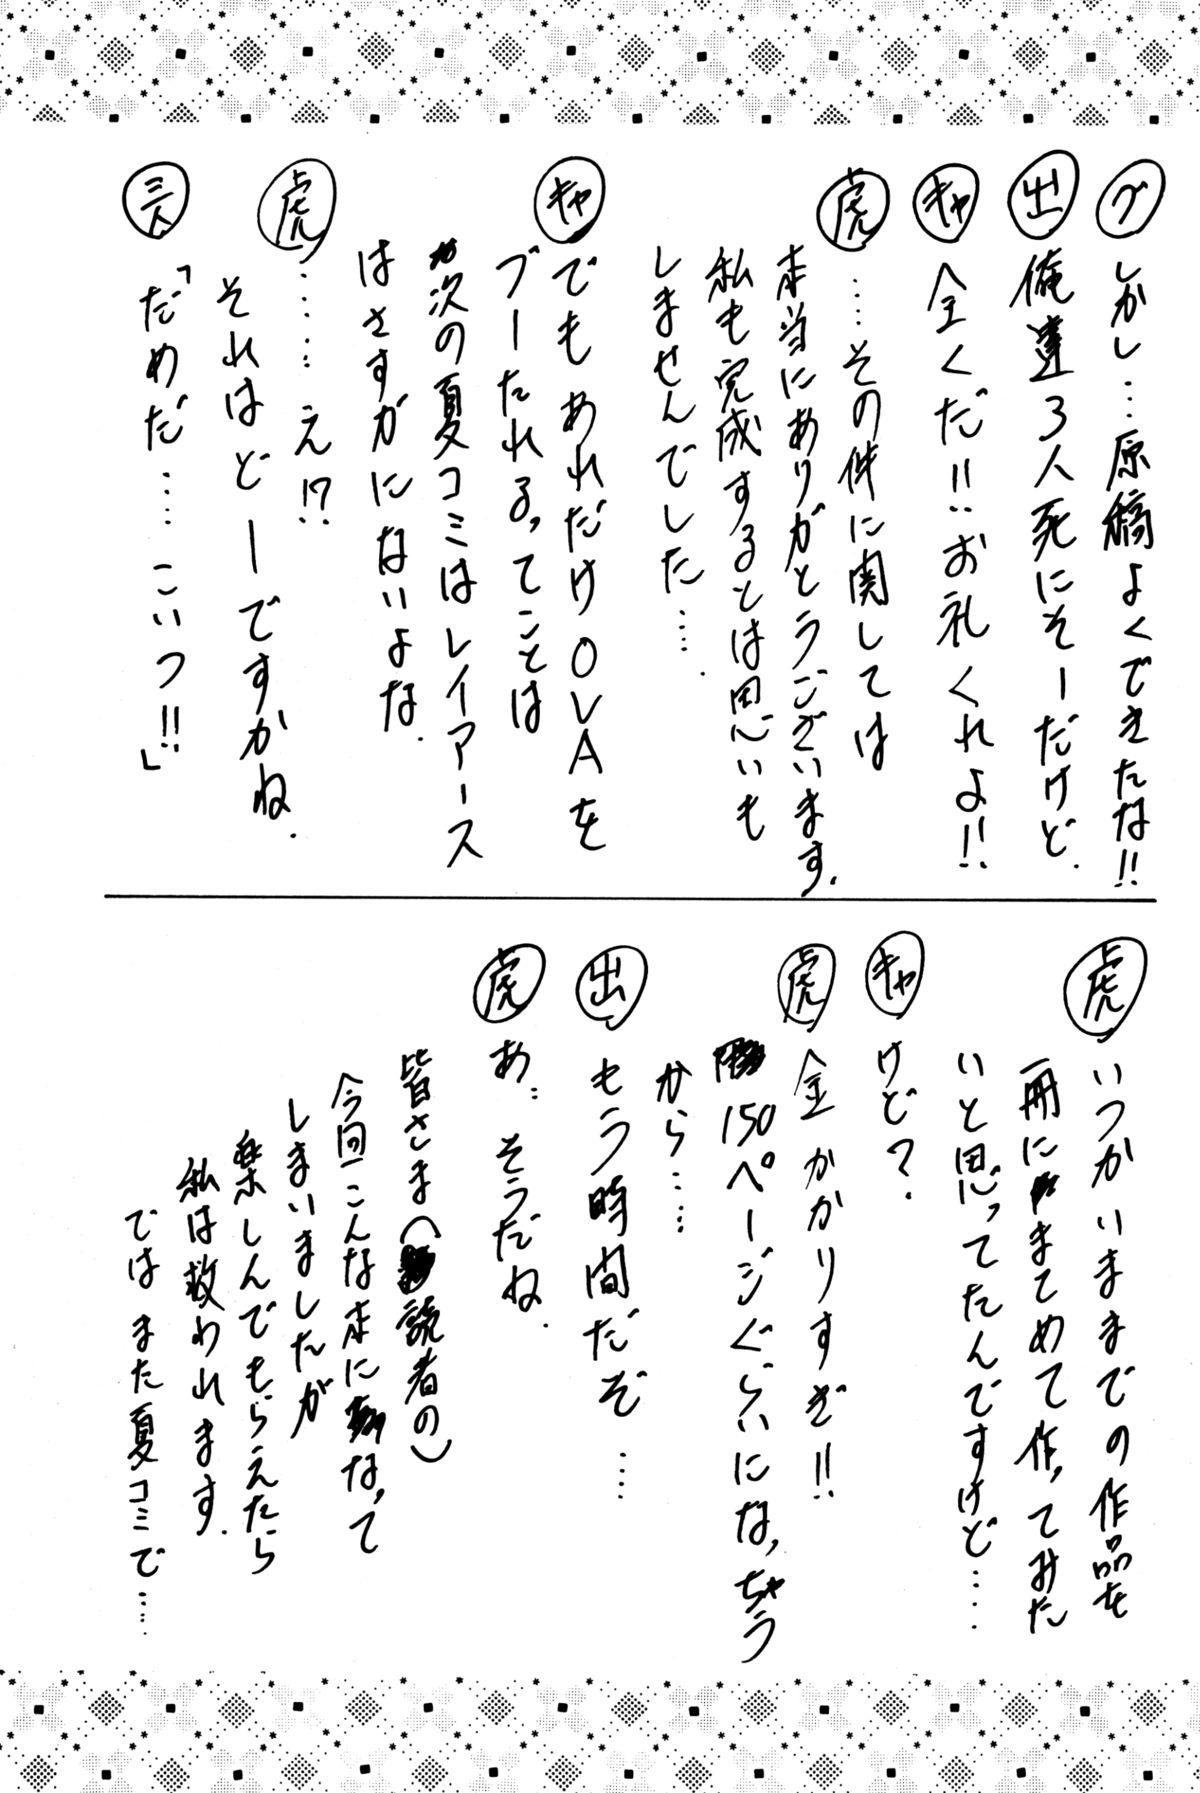 グ しかし…原稿よくできたな!!
出 俺達3人死にそーだけど.
キャ 全くだ!!お礼くれよ!!
虎 ……その件に関しては
本当にありがとうございます.
私も完成するとは思いも
しませんでした…….
キャ でもあれだけOVAを
ブーたれるってことは
次の夏コミはレイアース
はさすがにないよな.
虎 ……え!?
それはどーですかね.
三人 「だめだ……こいつ!!」
虎 いつかいままでの作品を
一冊にまとめて作ってみた
いと思ってたんですけど……
キャ けど?
虎 金かかりすぎ!!
150ページぐらいになっちゃう
から……
出 もう時間だぞ……
虎 あ、そうだね.
皆さま(読者の)
今回こんな本になって
しまいましたが
楽しんでもらえたら
私は救われます.
ではまた夏コミで……